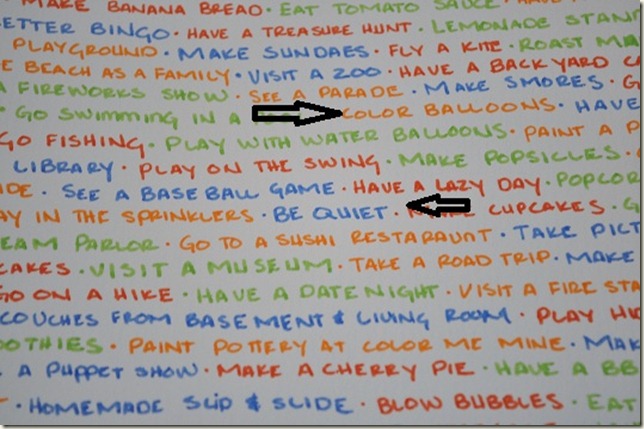 MAKE BANANA BREAD · EAT TOMATO SAUCE · HAVE
ETTER BINGO · HAVE A TREASURE HUNT · LEMONADE STAN
PLAYGROUND · MAKE SUNDAES · FLY A KITE · ROAST MA
E BEACH AS A FAMILY · VISIT A ZOO · HAVE A BACKYARD C
A FIREWORKS SHOW · SEE A PARADE · MAKE SMORES · G
· GO SWIMMING IN A COLOR BALLOONS · HAVE
GO FISHING · PLAY WITH WATER BALLOONS · PAINT A F
LIBRARY · PLAY ON THE SWING · MAKE POPSICLES ·
IDE · SEE A BASEBALL GAME · HAVE A LAZY DAY · POPCOR
AY IN THE SPRINKLERS · BE QUIET · MAKE CUPCAKES · G
EAM PARLOR · GO TO A SUSHI RESTARAUNT · TAKE PICT
CAKES · VISIT A MUSEUM · TAKE A ROAD TRIP · MAKE
GO ON A HIKE · HAVE A DATE NIGHT · VISIT A FIRE STA
COUCHES FROM BASEMENT & LIVING ROOM · PLAY HI
OOTHIES · PAINT POTTERY AT COLOR ME MINE · MAK
E A PUPPET SHOW · MAKE A CHERRY PIE · HAVE A BB
· HOMEMADE SLIP & SLIDE · BLOW BUBBLES · EAT